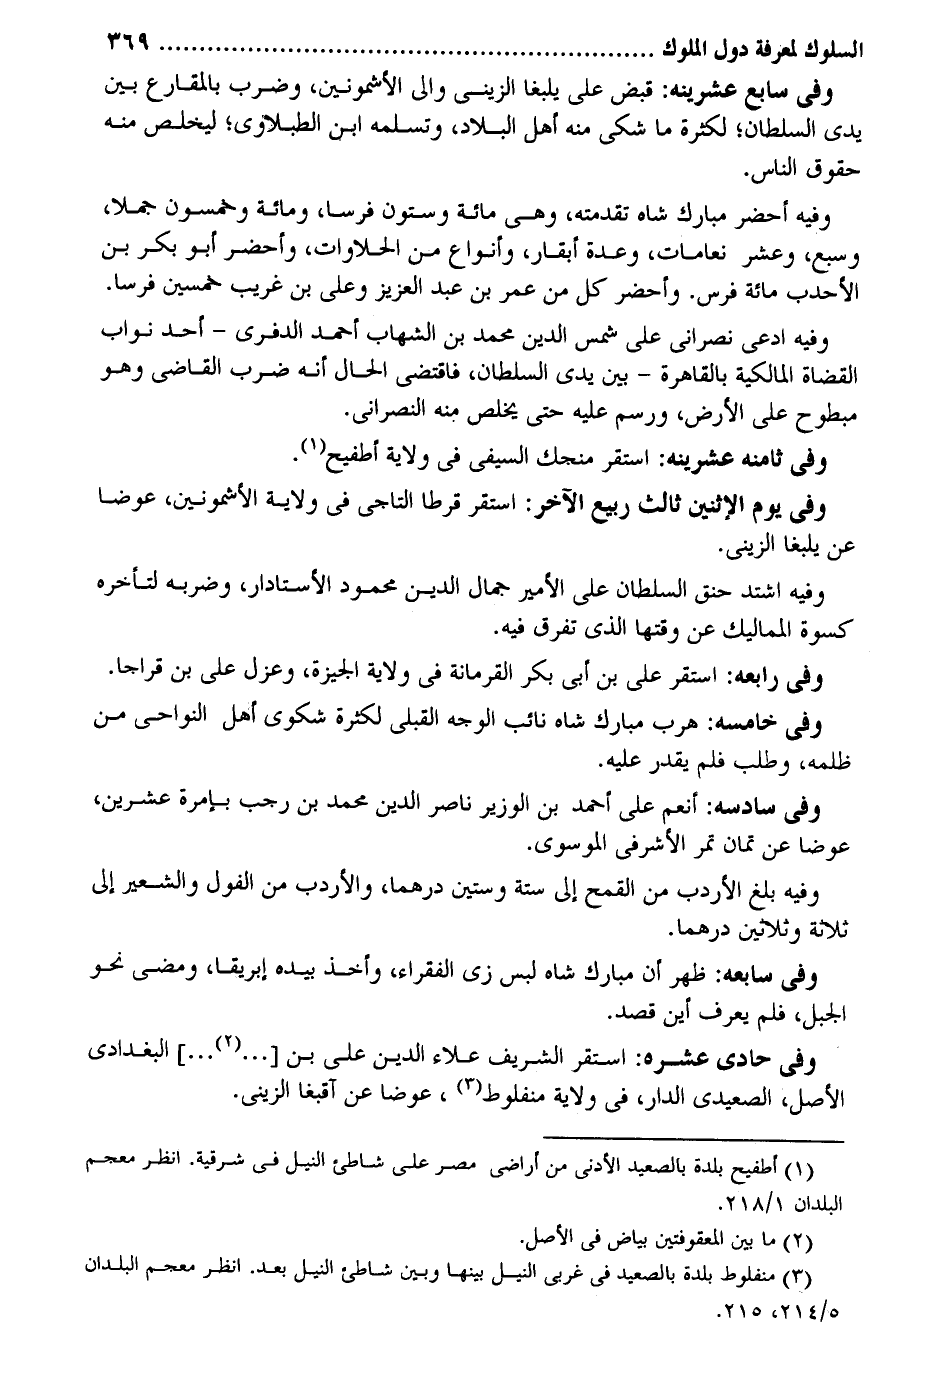 السلوك لمعرفة دول الملوك ................................................................ ٣٦٩
وفى سابع عشرينه: قبض على يلبغا الزينى والى الأشمونين، وضرب بالمقارع بين
يدى السلطان؛ لكثرة ما شكى منه أهل البلاد، وتسلمه ابن الطبلاوى؛ ليخلص منه
حقوق الناس.
وفيه أحضر مبارك شاه تقدمته، وهى مائة وستون فرسا، ومائة وخمسون جملا،
وسبع، وعشر نعامات، وعدة أبقار، وأنواع من الحلاوات، وأحضر أبو بكر بن
الأحدب مائة فرس. وأحضر كل من عمر بن عبد العزيز وعلى بن غريب خمسين فرسا.
وفيه ادعى نصرانى على شمس الدين محمد بن الشهاب أحمد الدفرى – أحد نواب
القضاة المالكية بالقاهرة – بين يدى السلطان، فاقتضى الحال أنه ضرب القاضى وهو
مبطوح على الأرض، ورسم عليه حتى يخلص منه النصرانى.
وفى ثامنه عشرينه: استقر منجك السيفى فى ولاية أطفيح(١).
وفى يوم الإثنين ثالث ربيع الآخر: استقر قرطا التاجى فى ولاية الأشمونين، عوضا
عن يلبغا الزينى.
وفيه اشتد حنق السلطان على الأمير جمال الدين محمود الأستادار، وضربه لتأخره
كسوة المماليك عن وقتها الذى تفرق فيه.
وفى رابعه: استقر على بن أبى بكر القرمانة فى ولاية الجيزة، وعزل على بن قراجا.
وفى خامسه: هرب مبارك شاه نائب الوجه القبلى لكثرة شكوى أهل النواحى من
ظلمه، وطلب فلم يقدر عليه.
وفى سادسه: أنعم على أحمد بن الوزير ناصر الدين محمد بن رجب بإمرة عشرين،
عوضا عن تمان تمر الأشرفى الموسوى.
وفيه بلغ الأردب من القمح إلى ستة وستين درهما، والأردب من الفول والشعير إلى
ثلاثة وثلاثين درهما.
وفى سابعه: ظهر أن مبارك شاه لبس زى الفقراء، وأخذ بيده إبريقا، ومضى نحو
الجبل، فلم يعرف أين قصد.
وفى حادى عشره: استقر الشريف علاء الدين على بن [...(٢)...] البغدادى
الأصل، الصعيدى الدار، فى ولاية منفلوط(٣) ، عوضا عن آقبغا الزينى.
(١) أطفيح بلدة بالصعيد الأدنى من أراضى مصر على شاطئ النيل فى شرقية. انظر معجم
البلدان ٢١٨/١.
(٢) ما بين المعقوفتين بياض فى الأصل.
(٣) منفلوط بلدة بالصعيد فى غربى النيل بينها وبين شاطئ النيل بعد. انظر معجم البلدان
٢١٤/٥، ٢١٥.